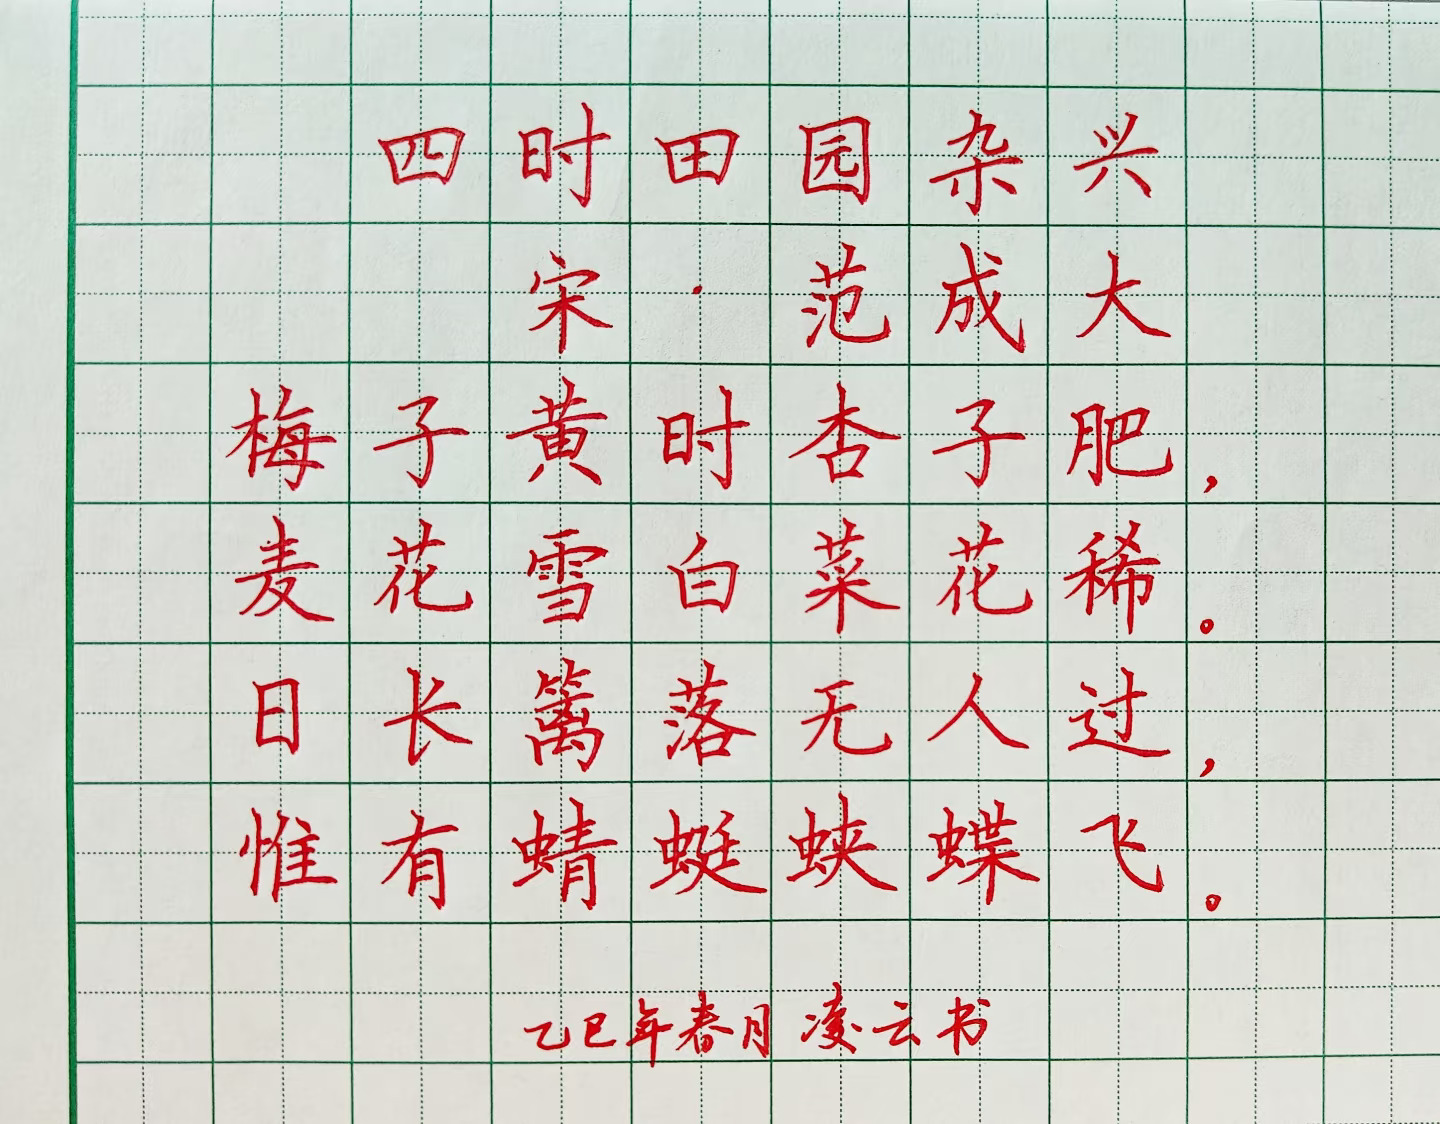 四时田园杂兴
宋·范成大
梅子黄时杏子肥，
麦花雪白菜花稀。
日长篱落无人过，
惟有蜻蜓蛱蝶飞。
乙巳年春月 凌云书